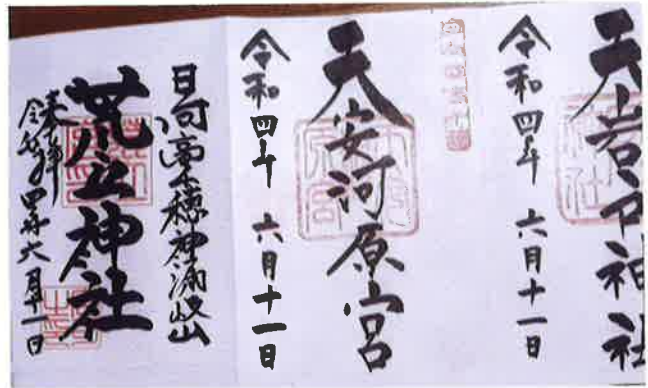 天岩戸神社
令和四年 六月十一日
天安河原宮
令和四年 六月十一日
日向高千穂神漏岐山
荒立神社
奉拝
令和四年六月十一日